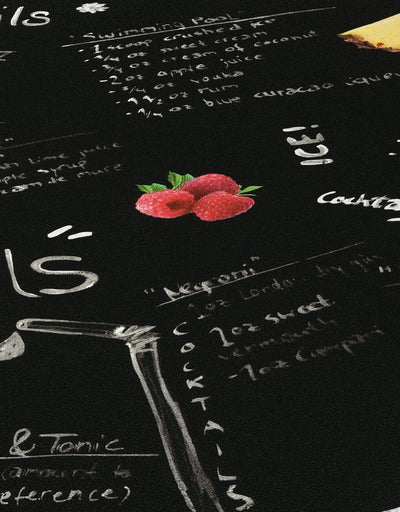 ils
"Swimming Pool"
1 scoop crushed ice
3/4 oz sweet cream
3/4 oz cream of coconut
2 oz apple juice
3/4 oz vodka
oz rum
oz blue curacao liqueur
lime juice
syrup
de mure
ICE!
Cockta
ls
"Negroni"
1 oz London dry gin
1 oz sweet
vermouth
1 oz Campari
COCKTAILS
& Tonic
(amount to
eference)